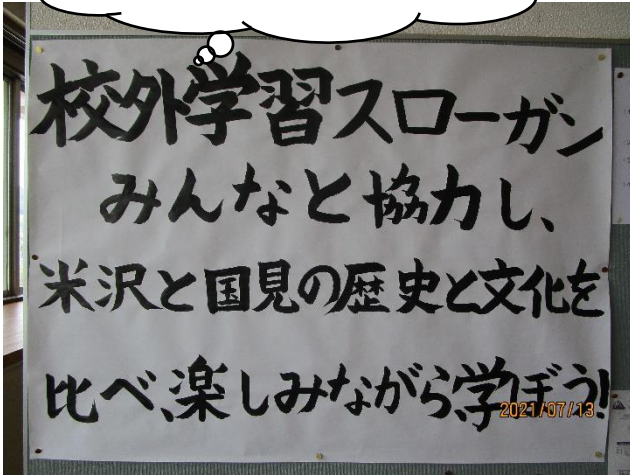 校外学習スローガン
みんなと協力し、
米沢と国見の歴史と文化を
比べ、楽しみながら、学ぼう!
2021/07/13